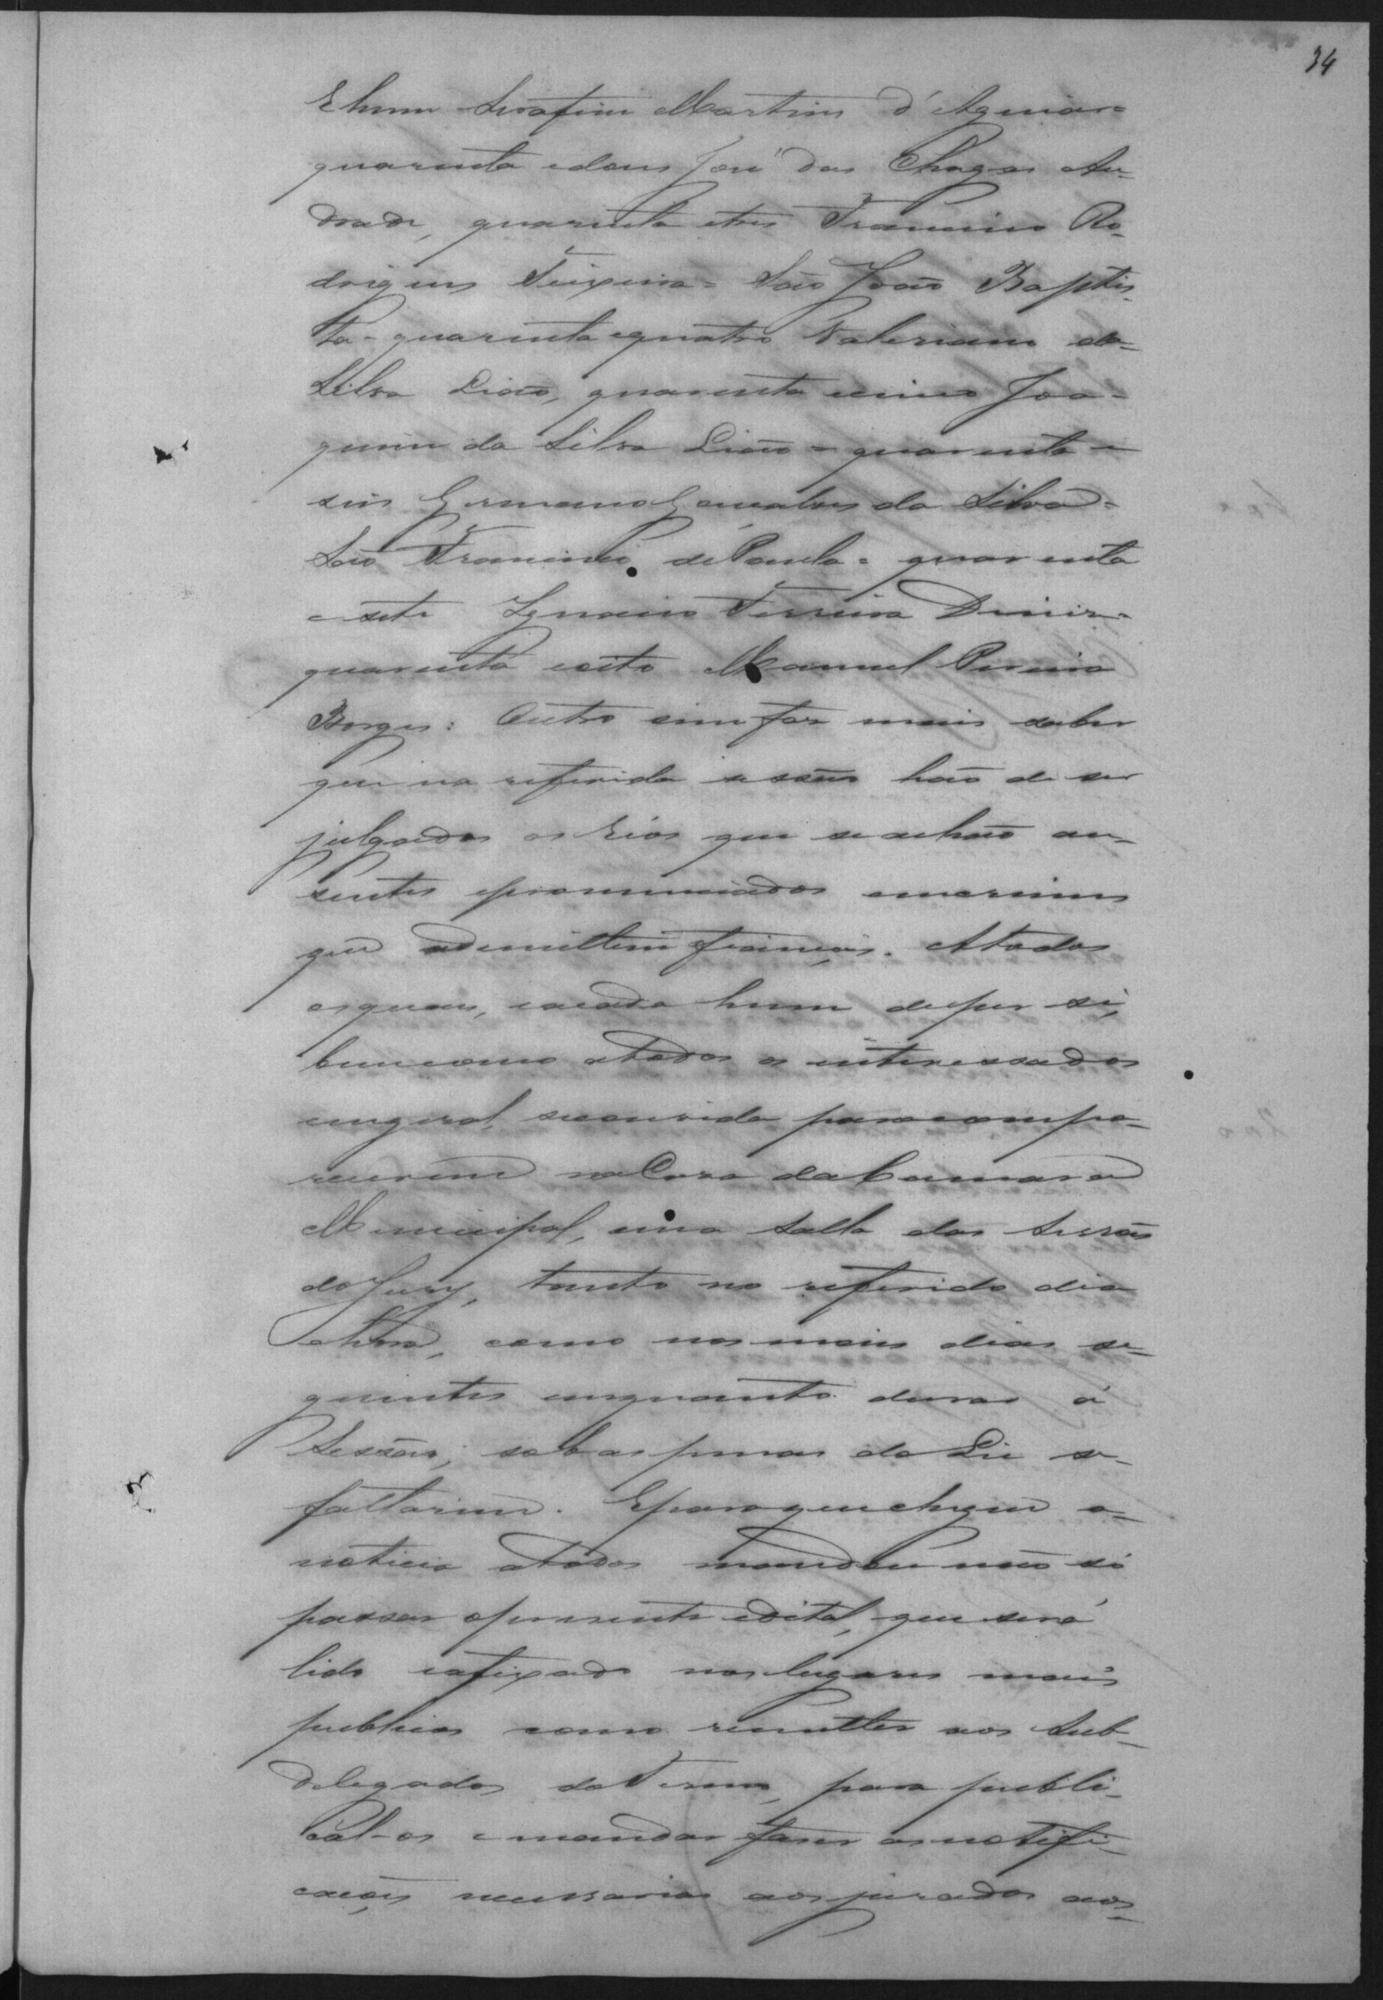 34
Ehum Serafim Martins d'Aguiar=
quarenta edous José das Chagas An-
drade, quarenta etres Francisco Ro-
drigues Teixeira= São João Baptis-
ta= quarenta equatro Valeriano da
Silva Lião, quarenta ecinco Joa-
quim da Silva Lião = quarenta e
seis Germano Gonçalves da Silva=
São Francisco de Paula= quarenta
e sete Ignacio Ferreira Diniz=
quarenta eoito Manuel Pereira
Borges: Outro sim faz mais saber
que na referida sessão hão de ser
julgados os reos que se achão au-
sentes epronunciados emcrimes
que admittem fianças. Atodos
osquaes, ecada hum deper si,
bemcomo atodos os interessados
emgeral, seconvida paracompa-
recerem naCaza daCamara
Municipal, ena Salla das Sessões
doJury, tanto no referido dia
ehora, como nos mais dias se-
guintes emquanto durar a
Sessão, sobaspenas da Lei se
faltarem. Eparaquechegue a
noticia atodos mandou não só
passar opresente edital, que será
lido eafixado nos lugares mais
publicos como remetter aos Sub-
delegados doTermo, para publi-
cal-os emandar fazer asnotifi-
cações necessarias aos jurados aos